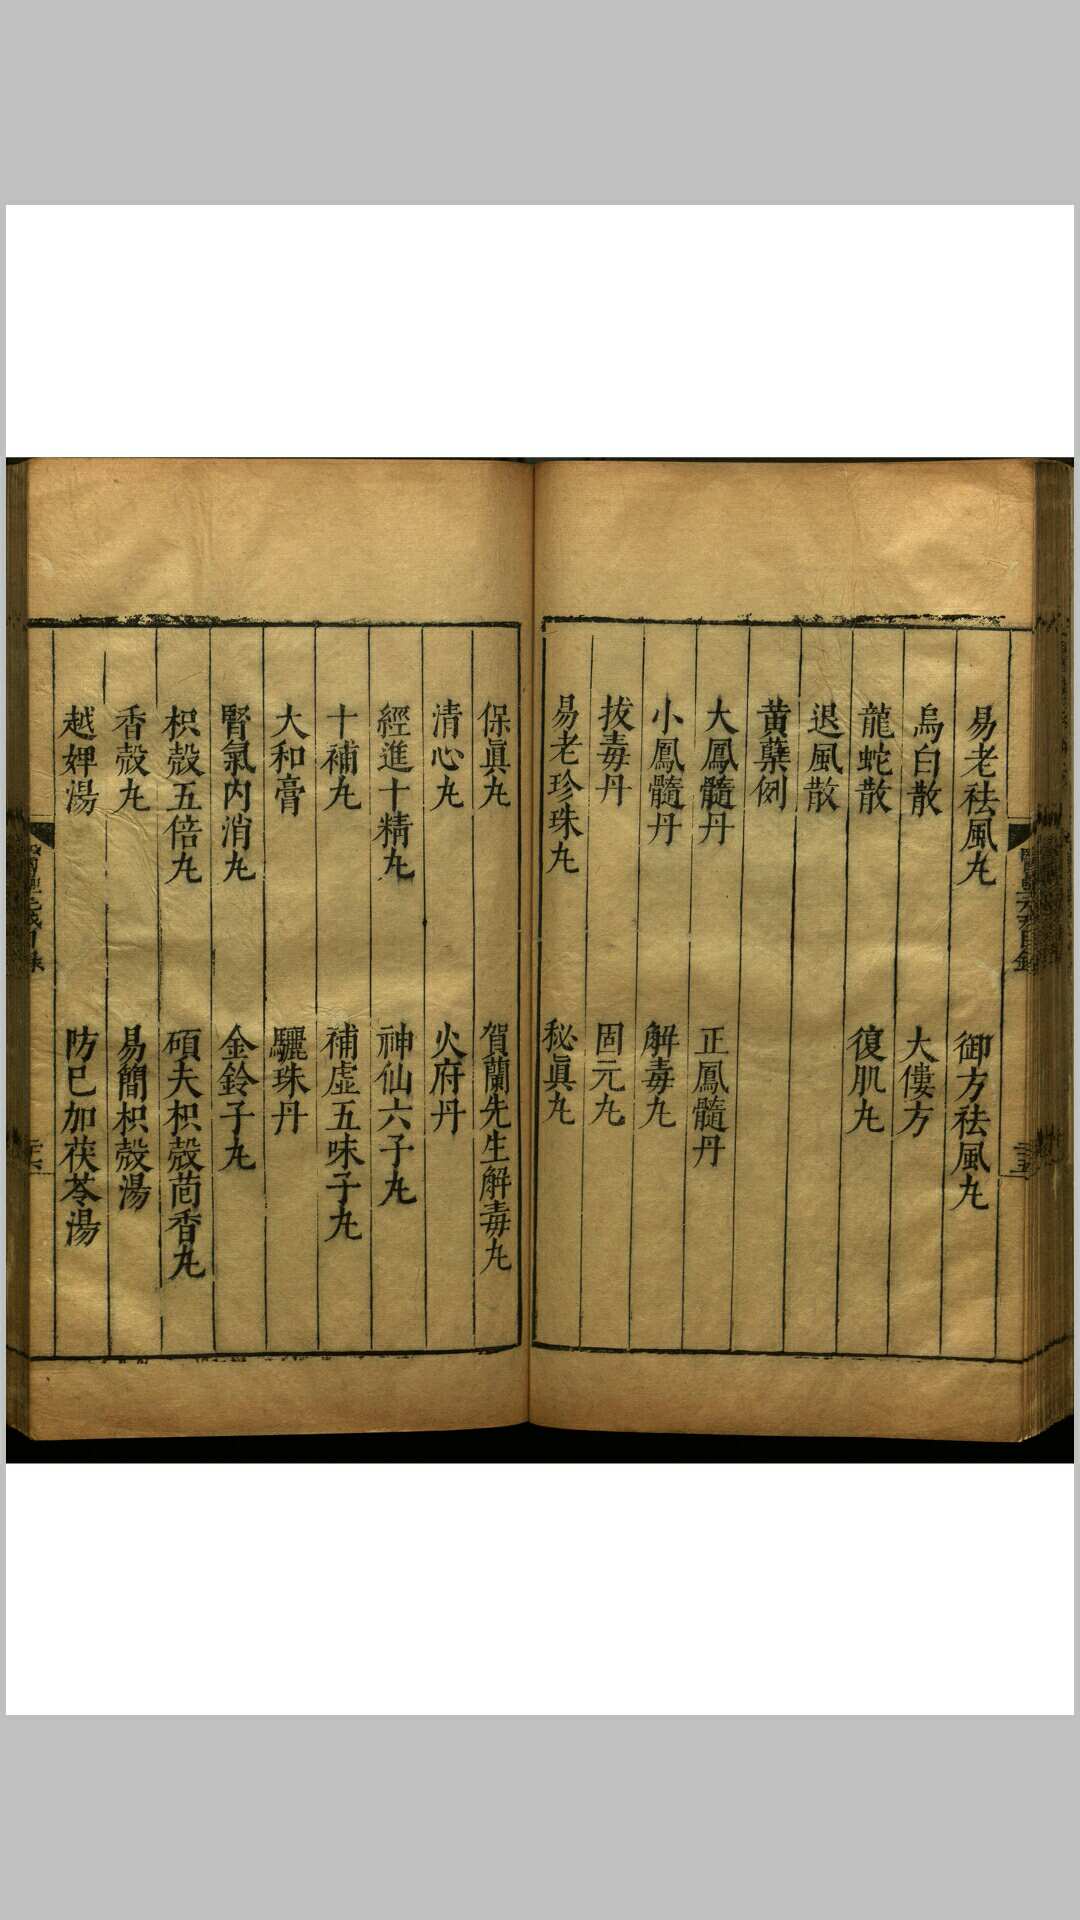 易老祛風丸　御方祛風丸
烏白散　大僂方
龍蛇散　復肌丸
退風散
黄蘗例
大鳳髓丹　正鳳髓丹
小鳳髓丹　解毒丸
拔毒丹　固元丸
易老珍珠丸　秘眞丸
保眞丸　賀蘭先生解毒丸
清心丸　火府丹
經進十精丸　神仙六子丸
十補丸　補虛五味子丸
大和膏　驪珠丹
腎氣内消丸　金鈴子丸
枳殼五倍丸　碩夫枳殼茴香丸
香殼丸　易簡枳殼湯
越婢湯　防已加茯苓湯